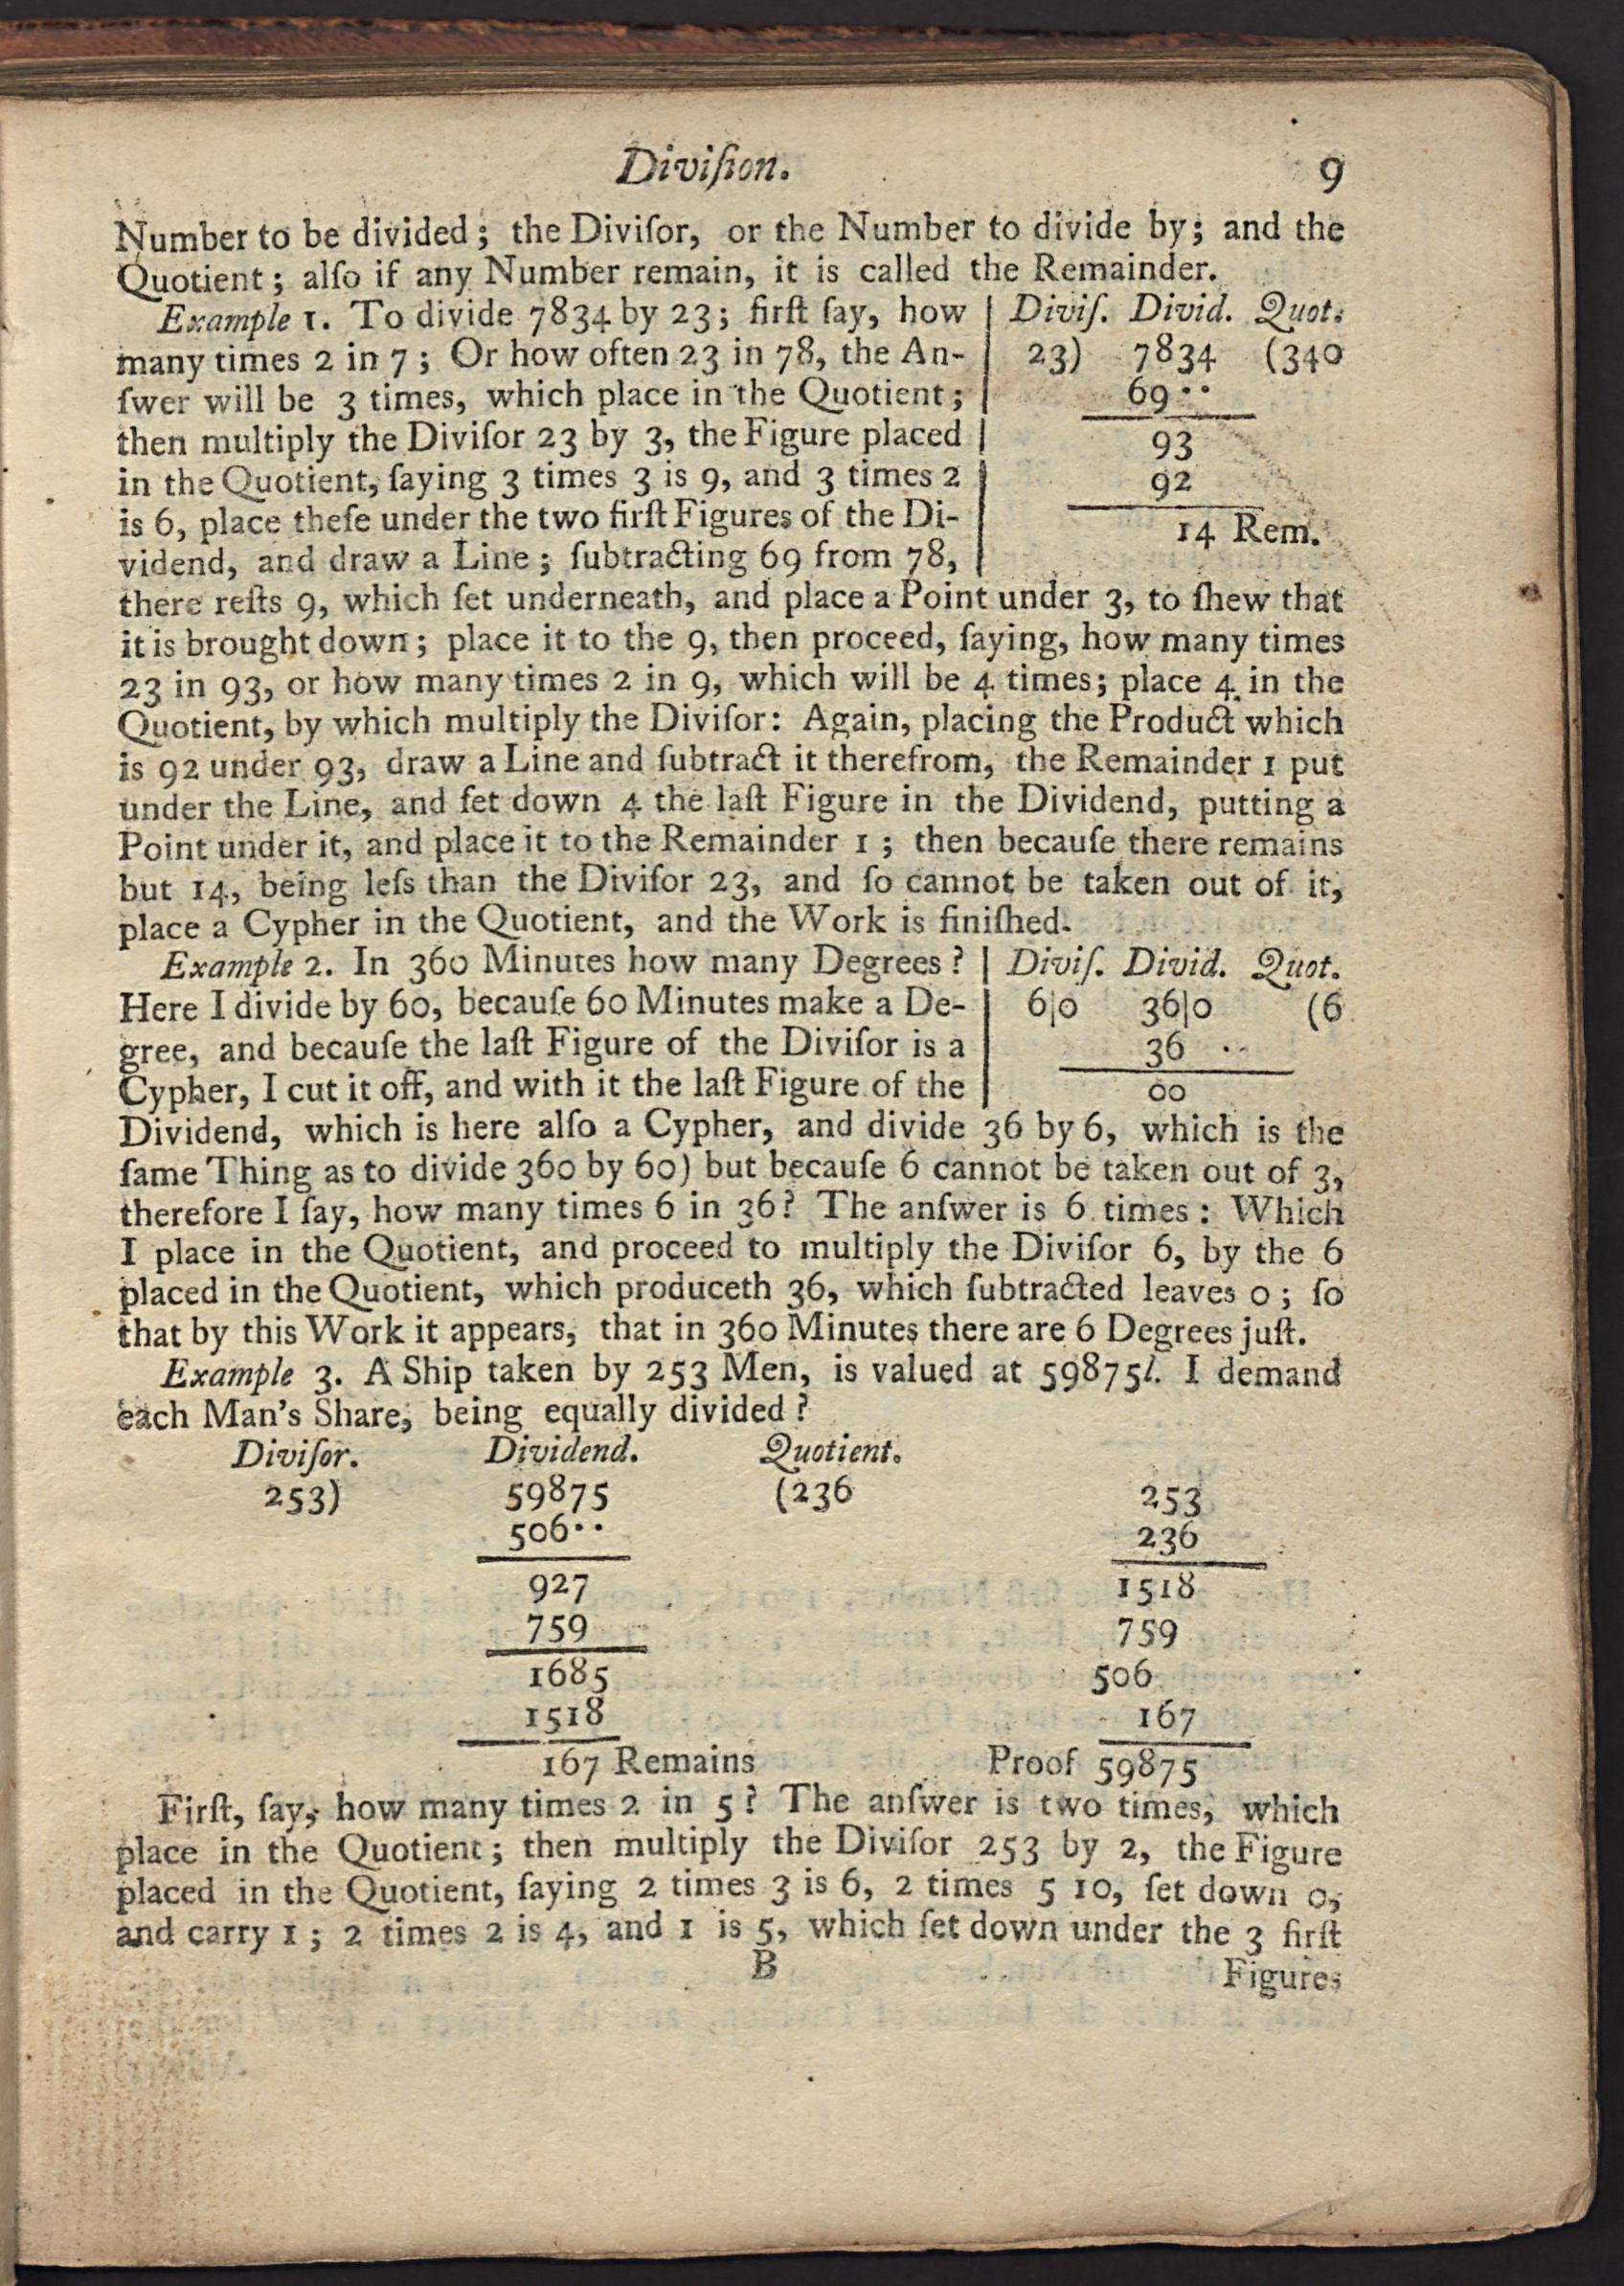 Diviſion.
9
Number to be divided; the Diviſor, or the Number to divide by; and the
Quotient; alſo if any Number remain, it is called the Remainder.
Example 1. To divide 7834 by 23; firſt ſay, how
many times 2 in 7; Or how often 23 in 78, the An-
ſwer will be 3 times, which place in the Quotient;
then multiply the Diviſor 23 by 3, the Figure placed
in the Quotient, ſaying 3 times 3 is 9, and 3 times 2
is 6, place theſe under the two firſt Figures of the Di-
vidend, and draw a Line; ſubtracting 69 from 78,
Diviſ. Divid. Quot.
23) 7834 (340
69··
93
92
14 Rem.
there reſts 9, which ſet underneath, and place a Point under 3, to ſhew that
it is brought down; place it to the 9, then proceed, ſaying, how many times
23 in 93, or how many times 2 in 9, which will be 4 times; place 4 in the
Quotient, by which multiply the Diviſor: Again, placing the Product which
is 92 under 93, draw a Line and ſubtract it therefrom, the Remainder 1 put
under the Line, and ſet down 4 the laſt Figure in the Dividend, putting a
Point under it, and place it to the Remainder 1; then becauſe there remains
but 14, being leſs than the Diviſor 23, and ſo cannot be taken out of it,
place a Cypher in the Quotient, and the Work is finiſhed.
Example 2. In 360 Minutes how many Degrees?
Here I divide by 60, becauſe 60 Minutes make a De-
gree, and becauſe the laſt Figure of the Diviſor is a
Cypher, I cut it off, and with it the laſt Figure of the
Diviſ. Divid. Quot.
6|0 36|0 (6
36 ··
00
Dividend, which is here alſo a Cypher, and divide 36 by 6, which is the
ſame Thing as to divide 360 by 60) but becauſe 6 cannot be taken out of 3,
therefore I ſay, how many times 6 in 36? The anſwer is 6 times: Which
I place in the Quotient, and proceed to multiply the Diviſor 6, by the 6
placed in the Quotient, which produceth 36, which ſubtracted leaves 0; ſo
that by this Work it appears, that in 360 Minutes there are 6 Degrees juſt.
Example 3. A Ship taken by 253 Men, is valued at 59875l. I demand
each Man's Share, being equally divided?
Diviſor. Dividend. Quotient.
253) 59875 (236 253
506·· 236
927 1518
759 759
1685 506
1518 167
167 Remains Proof 59875
Firſt, ſay, how many times 2 in 5? The anſwer is two times, which
place in the Quotient; then multiply the Diviſor 253 by 2, the Figure
placed in the Quotient, ſaying 2 times 3 is 6, 2 times 5 10, ſet down 0,
and carry 1; 2 times 2 is 4, and 1 is 5, which ſet down under the 3 firſt
B
Figures